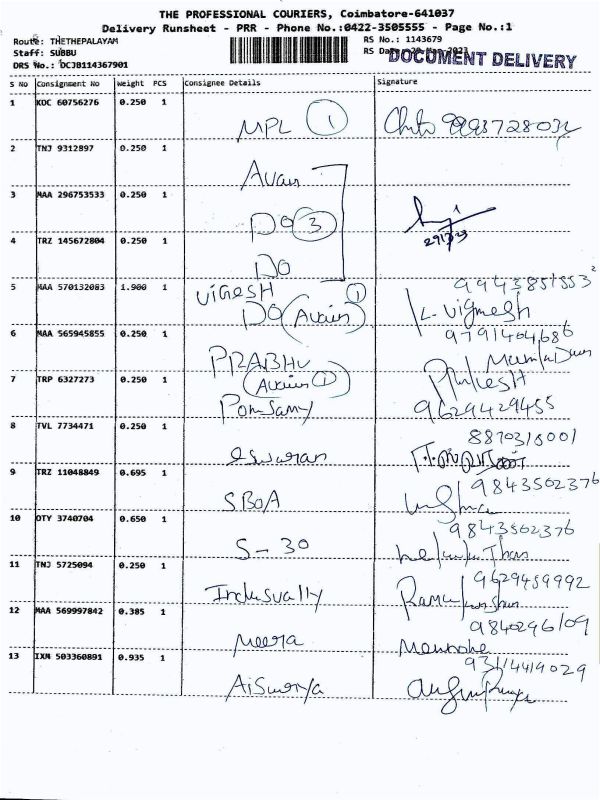 THE PROFESSIONAL COURIERS, Coimbatore-641037
Delivery Runsheet - PRR - Phone No.:0422-3505555 - Page No.:1
Route: THETHEPALAYAM
RS No.: 1143679
Staff: SUBBU
RS Date:
DOCUMENT DELIVERY
DRS No.: DCJB114367901
S No Consignment No Weight PCS Consignee Details Signature
1 KOC 60756276 0.250 1
MPL 1
2 TNJ 9312897 0.250 1
Avan
3 MAA 296753533 0.250 1
DO 3
29/3/23
4 TRZ 145672804 0.250 1
DO
5 MAA 570132083 1.900 1
VIGESH 1 9943851553
DO L. Vignesh
6 MAA 565945855 0.250 1
9791404686
PRABHU
7 TRP 6327273 0.250 1
Ponsamy 9629429455
8 TVL 7734471 0.250 1
8870316001
eswaran
9 TRZ 11048849 0.695 1
9843502376
SBOA
10 OTY 3740704 0.650 1
9843502376
S-30
11 TNJ 5725094 0.250 1
9629459992
Indusvally
12 MAA 569997842 0.385 1
9840296109
Meera
13 IXM 503360891 0.935 1
9314419029
Aiswarya